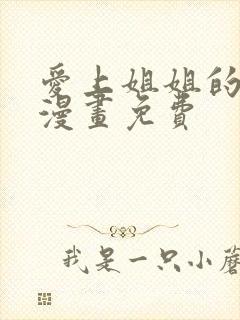 愛上姐姐的
漫畫免費
我是一只小蘑